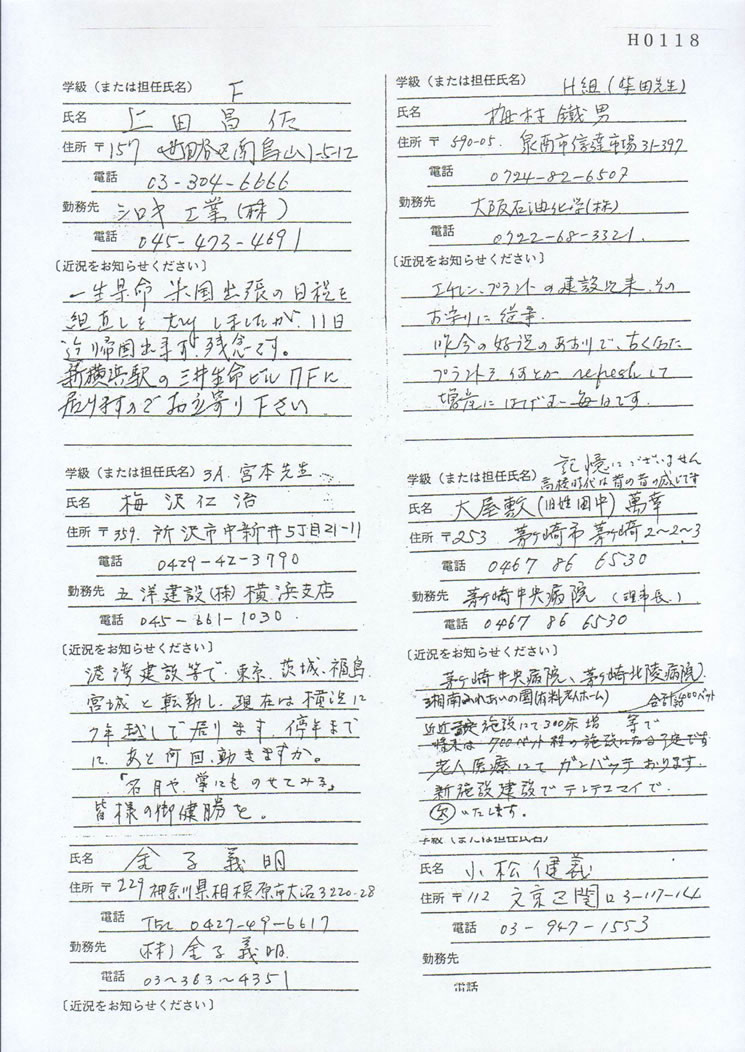 H0118
学級（または担任氏名） F
氏名 上田昌佐
住所 〒157 世田谷区南烏山1-5-12
電話 03-304-6666
勤務先 シロキ工業(株)
電話 045-473-4691
〔近況をお知らせください〕
一生県命 米国出張の日程を
組直しを しましたが、11日
迄帰国出来ず、残念です。
新横浜駅の三井生命ビル7Fに
居りますのでお立寄り下さい
学級（または担任氏名） 3A. 宮本先生
氏名 梅沢仁治
住所 〒359. 所沢市中新井5丁目21-11
電話 0429-42-3790
勤務先 五洋建設(株)横浜支店
電話 045-661-1030.
〔近況をお知らせください〕
港湾建設等で、東京、茨城、福島、
宮城と転勤し、現在は横浜に
7年越しで居ります。停年まで
に、あと何回、動きますか。
「名月や、掌にものせてみる」
皆様の御健勝を。
氏名 金子義明
住所 〒229 神奈川県相模原市大沼3220-28
電話 TEL 0427-49-6617
勤務先 (株)金子義明
電話 03〜363〜4351
〔近況をお知らせください〕
学級（または担任氏名） H組(柴田先生)
氏名 梅村鐵男
住所 〒590-05. 泉南市信達市場31-397
電話 0724-82-6507
勤務先 大阪石油化学(株)
電話 0722-68-3321.
〔近況をお知らせください〕
エチレン、プラントの建設以来、その
お守りに従事.
昨今の好況のあおりで、古くなった
プラントを、何とか refresh して
増産にはげむ毎日です.
学級（または担任氏名） 記憶にございません
高校時代は昔の昔の感じです
氏名 大屋敷(旧姓田中)萬幸
住所 〒253 茅ヶ崎市茅ヶ崎2〜2〜3
電話 0467 86 6530
勤務先 茅ヶ崎中央病院 (理事長)
電話 0467 86 6530
〔近況をお知らせください〕
茅ヶ崎中央病院、茅ヶ崎北陵病院)
湘南ふれあいの園(有料老人ホーム) 合計400ベット
近近 施設にて300床増 等で
将来は700ベット程の施設になる予定です
老人医療にてガンバッテおります.
新施設建設でテンテコマイで.
欠いたします.
学級（または担任氏名）
氏名 小松健義
住所 〒112 文京区関口3-117-144
電話 03-947-1553
勤務先
電話